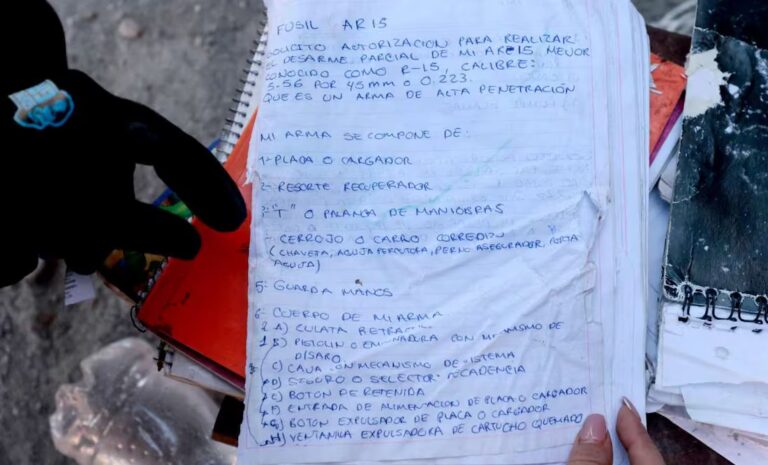 FUSIL AR15
SOLICITO AUTORIZACION PARA REALIZAR
EL DESARME PARCIAL DE MI AR15 MEJOR
CONOCIDO COMO R-15, CALIBRE:
5.56 POR 45 MM O 0.223.
QUE ES UN ARMA DE ALTA PENETRACIÓN
MI ARMA SE COMPONE DE:
1- PLACA O CARGADOR
2- RESORTE RECUPERADOR
"T" O PALANCA DE MANIOBRAS
- CERROJO O CARRO CORREDIZO
(CHAVETA, AGUJA PERCUTORA, PERNO ASEGURADOR, PORTA
AGUJA)
5- GUARDA MANOS
6- CUERPO DE MI ARMA
A) CULATA
B) PISTOLIN O CON DE
DISARO
C) CAJA CON MECANISMO DE SISTEMA
D) SEGURO O SELECTOR CADENCIA
BOTON DE RETENIDA
ENTRADA DE ALIMENTACION DE PLACA O CARGADOR
G) BOTON EXPULSADOR DE PLACA O CARGADOR
H) VENTANILLA EXPULSADORA DE CARTUCHO QUEMADO